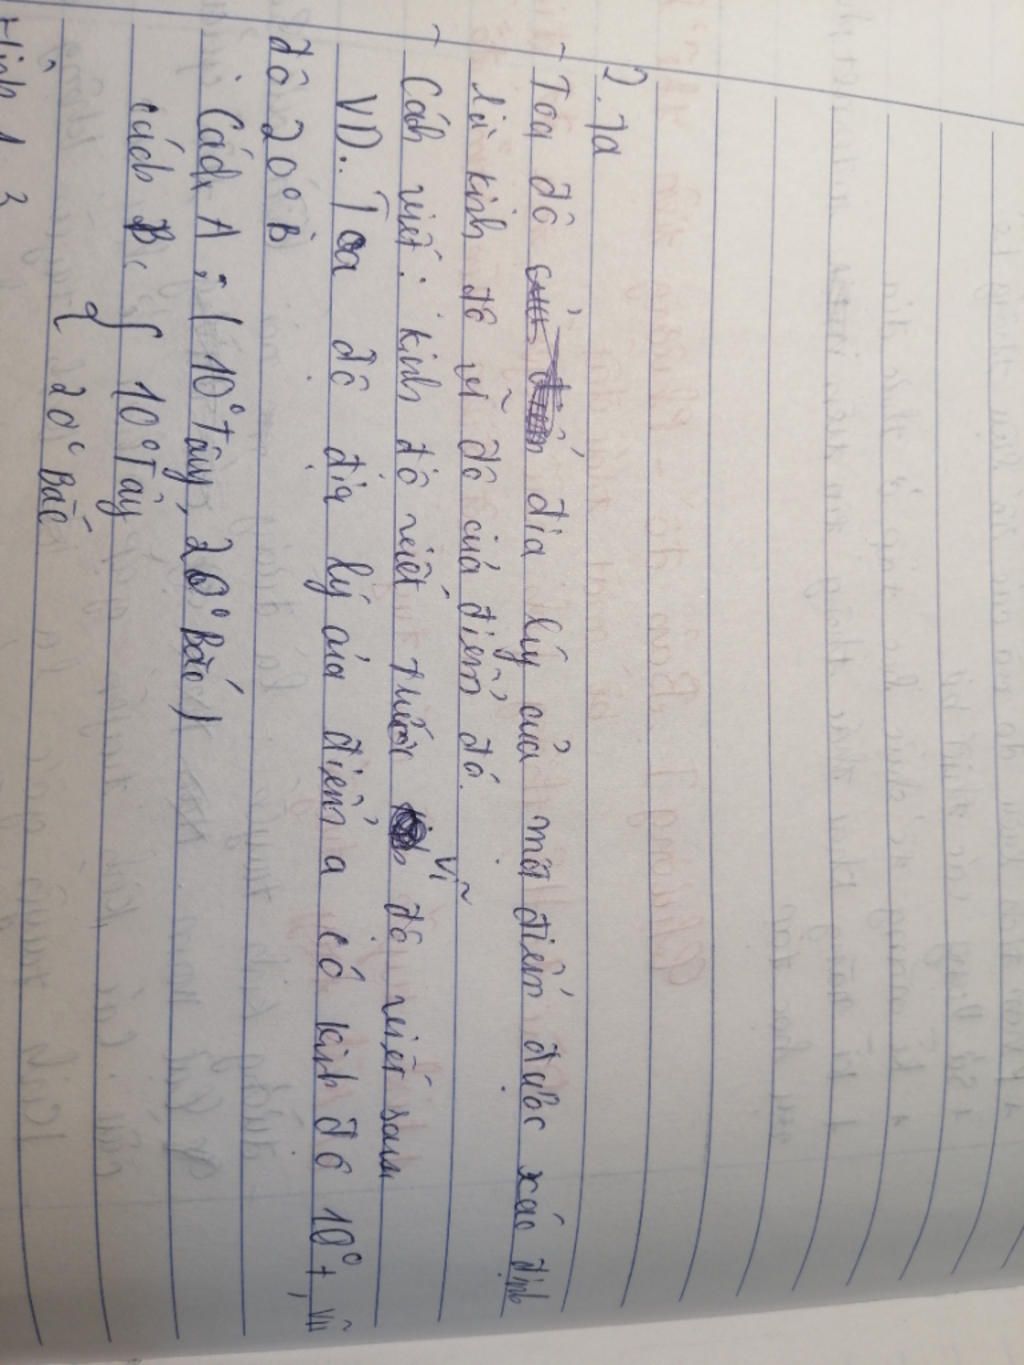 2. Tọa
- Tọa độ địa lý của một điểm được xác định
là kinh độ vĩ độ của điểm đó.
- Cách viết: kinh độ viết trước vĩ độ viết sau
VD: Tọa độ địa lý của điểm a có kinh độ 10° T, vĩ
độ 20° B
Cách A: (10° Tây, 20° Bắc)
Cách B: { 10° Tây
20° Bắc